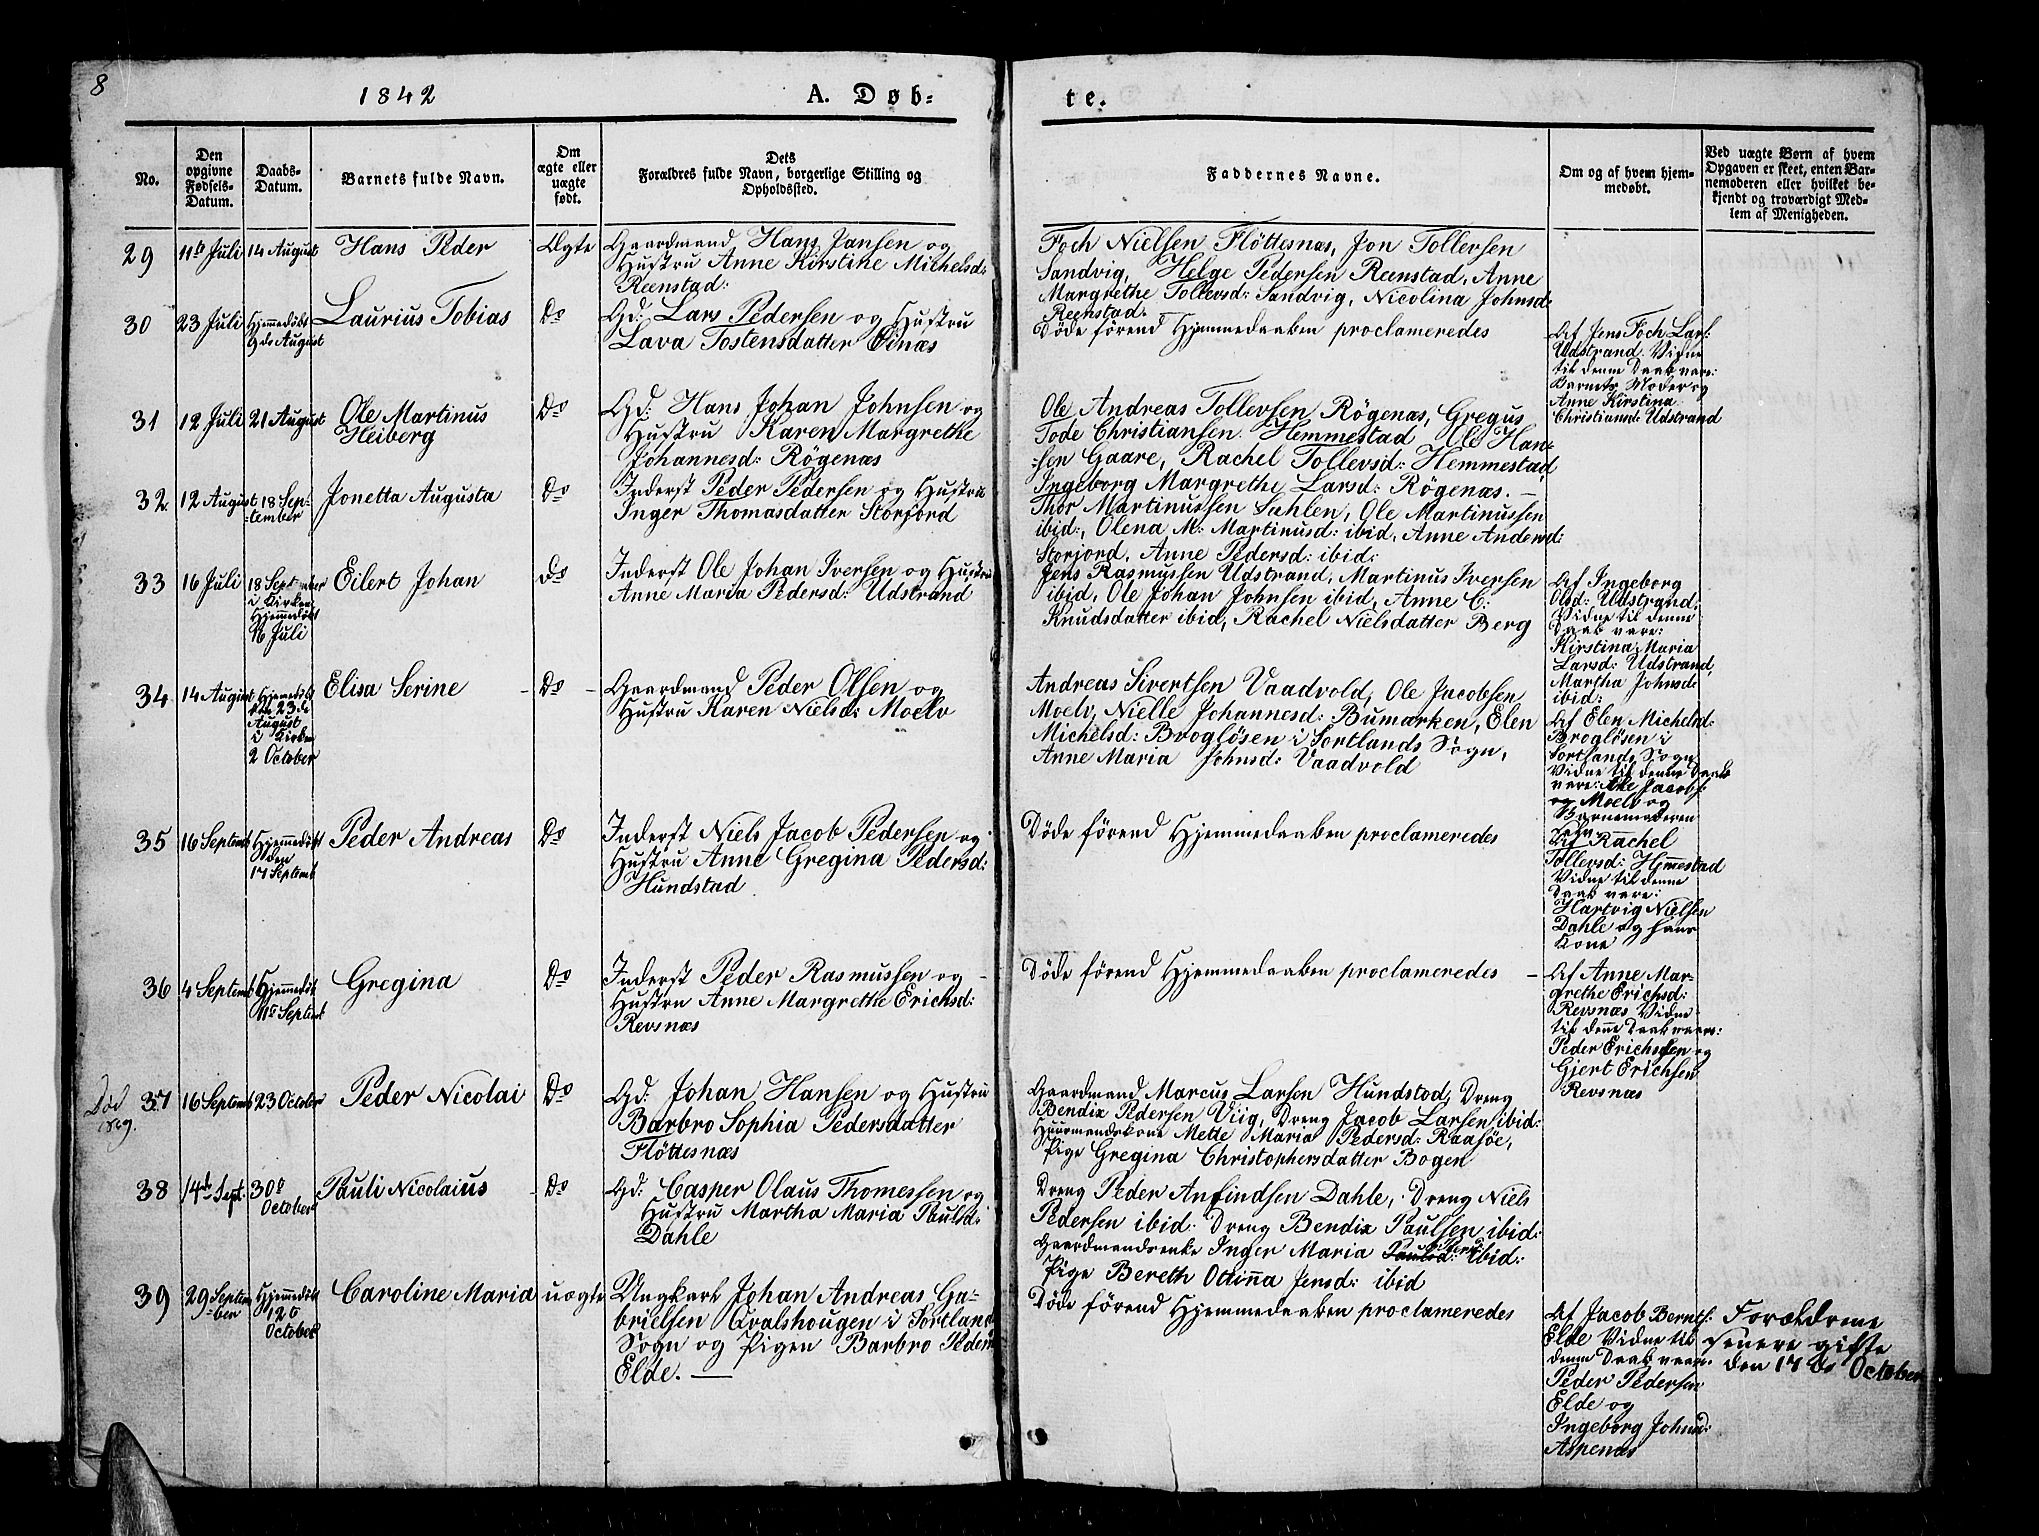 8
1842
A. Døb-
te.
No.
Den opgivne Fødsels-Datum.
Daabs-Datum.
Barnets fulde Navn.
Om ægte eller uægte født.
Dets Forældres fulde Navn, borgerlige Stilling og Opholdssted.
Faddernes Navne.
Om og af hvem hjem-
medøbt.
Ved uægte Børn af hvem
Opgaven er skeet, enten Bar-
nemoderen eller hvilket be-
kjendt og troværdigt Med-
lem af Menigheden.
29
11te Juli
14 August
Hans Peder
Ægte
Gaardmand Hans Jansen og
Hustru Anne Kirstine Michelsd:
Reenstad:
Foch Nielsen Flöttesnæs, Jon Tollevsen
Sandvig, Helge Pedersen Reenstad, Anne
Margrethe Tollevsd: Sandvig, Nicolina Johnsd:
Reenstad.
30
23 Juli
Hjemmedøbt
9de August
Laurius Tobias
Do
Gd: Lars Pedersen og Hustru
Lava Tostensdatter Oenæs
Döde förend Hjemmedaaben proclameredes
Af Jens Foch Lars:
Udstrand. Vidne
til denne Daab vare:
Barnets Moder og
Anne Kirstina
Christiansd: Udstrand
31
12 Juli
21 August
Ole Martinus
Heiberg
Do
Gd: Hans Johan Johnsen og
Hustru Karen Margrethe
Johannesd: Rögenæs
Ole Andreas Tollevsen Rögenæs, Gregus
Tode Christiansen Hemmestad Ole Han-
-sen Gaare, Rachel Tollevsd: Hemmestad,
Ingeborg Margrethe Larsd: Rögenæs. —
32.
12 August
18 Sep-
-tember
Jonetta Augusta
Do
Inderst Peder Pedersen og Hustru
Inger Thomasdatter Storjord
Thor Martinussen Sahlen, Ole Martinussen
ibid:, Olena M: Martinusd: ibid, Anne Andersd:
Storjord, Anne Pedersd: ibid:
33
16 Juli
18 Sept
i Kirken
Hjemmedøbt
16 Juli
Eilert Johan
do
Inderst Ole Johan Iversen og Hustru
Anne Maria Pedersd: Udstrand
Jens Rasmussen Udstrand, Martinus Iversen
ibid, Ole Johan Johnsen ibid, Anne C:
Knudsdatter ibid, Rachel Nielsdatter Berg
Af Ingeborg
Olsd: Udstrand.
Vidne til denne
Daab vare:
Kirstina Maria
Larsd: Udstrand,
Martha Johnsd:
ibid:
34
14 August
Hjemmedøbt
den 23de
August
i Kirken
2 October
Elisa Serine
Do
Gaardmand Peder Olsen og
Hustru Karen Nielsd: Moelv
Andreas Sivertsen Vaadvold, Ole Jacobsen
Moelv, Nielle Johannesd: Bumarken, Elen
Michelsd: Broglösen i Sortlands Sogn,
Anne Maria Johnsd: Vaadvold
Af Elen Michelsd:
Broglösen i
Sortlands Sogn
Vidne til denne Daab
vare: Ole Jacobs:
og Moelv og
Barnemoderen
35
16 Septemb
Hjemmedøbt
den
17 Septemb
Peder Andreas
Do
Inderst Niels Jacob Pedersen og
Hustru Anne Gregina Pedersd:
Hundstad
Döde förend Hjemmedaaben proclameredes
Af Rachel
Tollevsd: Hemmestad
Vidne til denne
Daab vare:
Hartvig Nielsen
Dahle og hans
Kone
36
4 Septemb
Hjemmedøbt
11te Septemb
Gregina
Do
Inderst Peder Rasmussen og
Hustru Anne Margrethe Erichsd:
Revsnæs
Döde förend Hjemmedaaben proclameredes —
Af Anne Mar-
grethe Erichsd:
Revsnæs Vidne
til denne Daab vare:
Peder Erichsen og
Gjert Erichsen
Revsnæs
Död
37
16 Septemb
23 October
Peder Nicolai
Do
Gd: Johan Hansen og Hustru
Barbro Sophia Pedersdatter
Flöttesnæs
Gaardmand Marcus Larsen Hundstad, Dreng
Bendix Pedersen Viig, Dreng Jacob Larsen ibid:
Huusmandskone Mette Maria Pedersd: Raasöe,
Pige Gregina Christophersdatter Bogen
38
14de Sept.
30te
October
Pauli Nicolaius
Do
Gd: Casper Olaus Thomessen og
Hustru Martha Maria Paulsd:
Dahle
Dreng Peder Anfindsen Dahle, Dreng Niels
Pedersen ibid. Dreng Bendix Paulsen ibid:
Gaardmandsenke Inger Maria Paulsd: ibid:
Pige Bereth Ottinna Jensd: ibid
39
29 Septem
-ber
Hjemmedøbt
12te
October
Caroline Maria
uægte
Ungkarl Johan Andreas Ga-
brielsen Qvalshougen i Sortland
Sogn og Pigen Barbro Peders
Elde. —
Döde förend Hjemmedaaben proclameredes
Af Jacob Bernts:
Elde Vidne til
denne Daab vare:
Peder Pedersen
Elde og
Ingeborg Johnsd:
Aspenæs
Forældrene
senere gifte
den 17de October